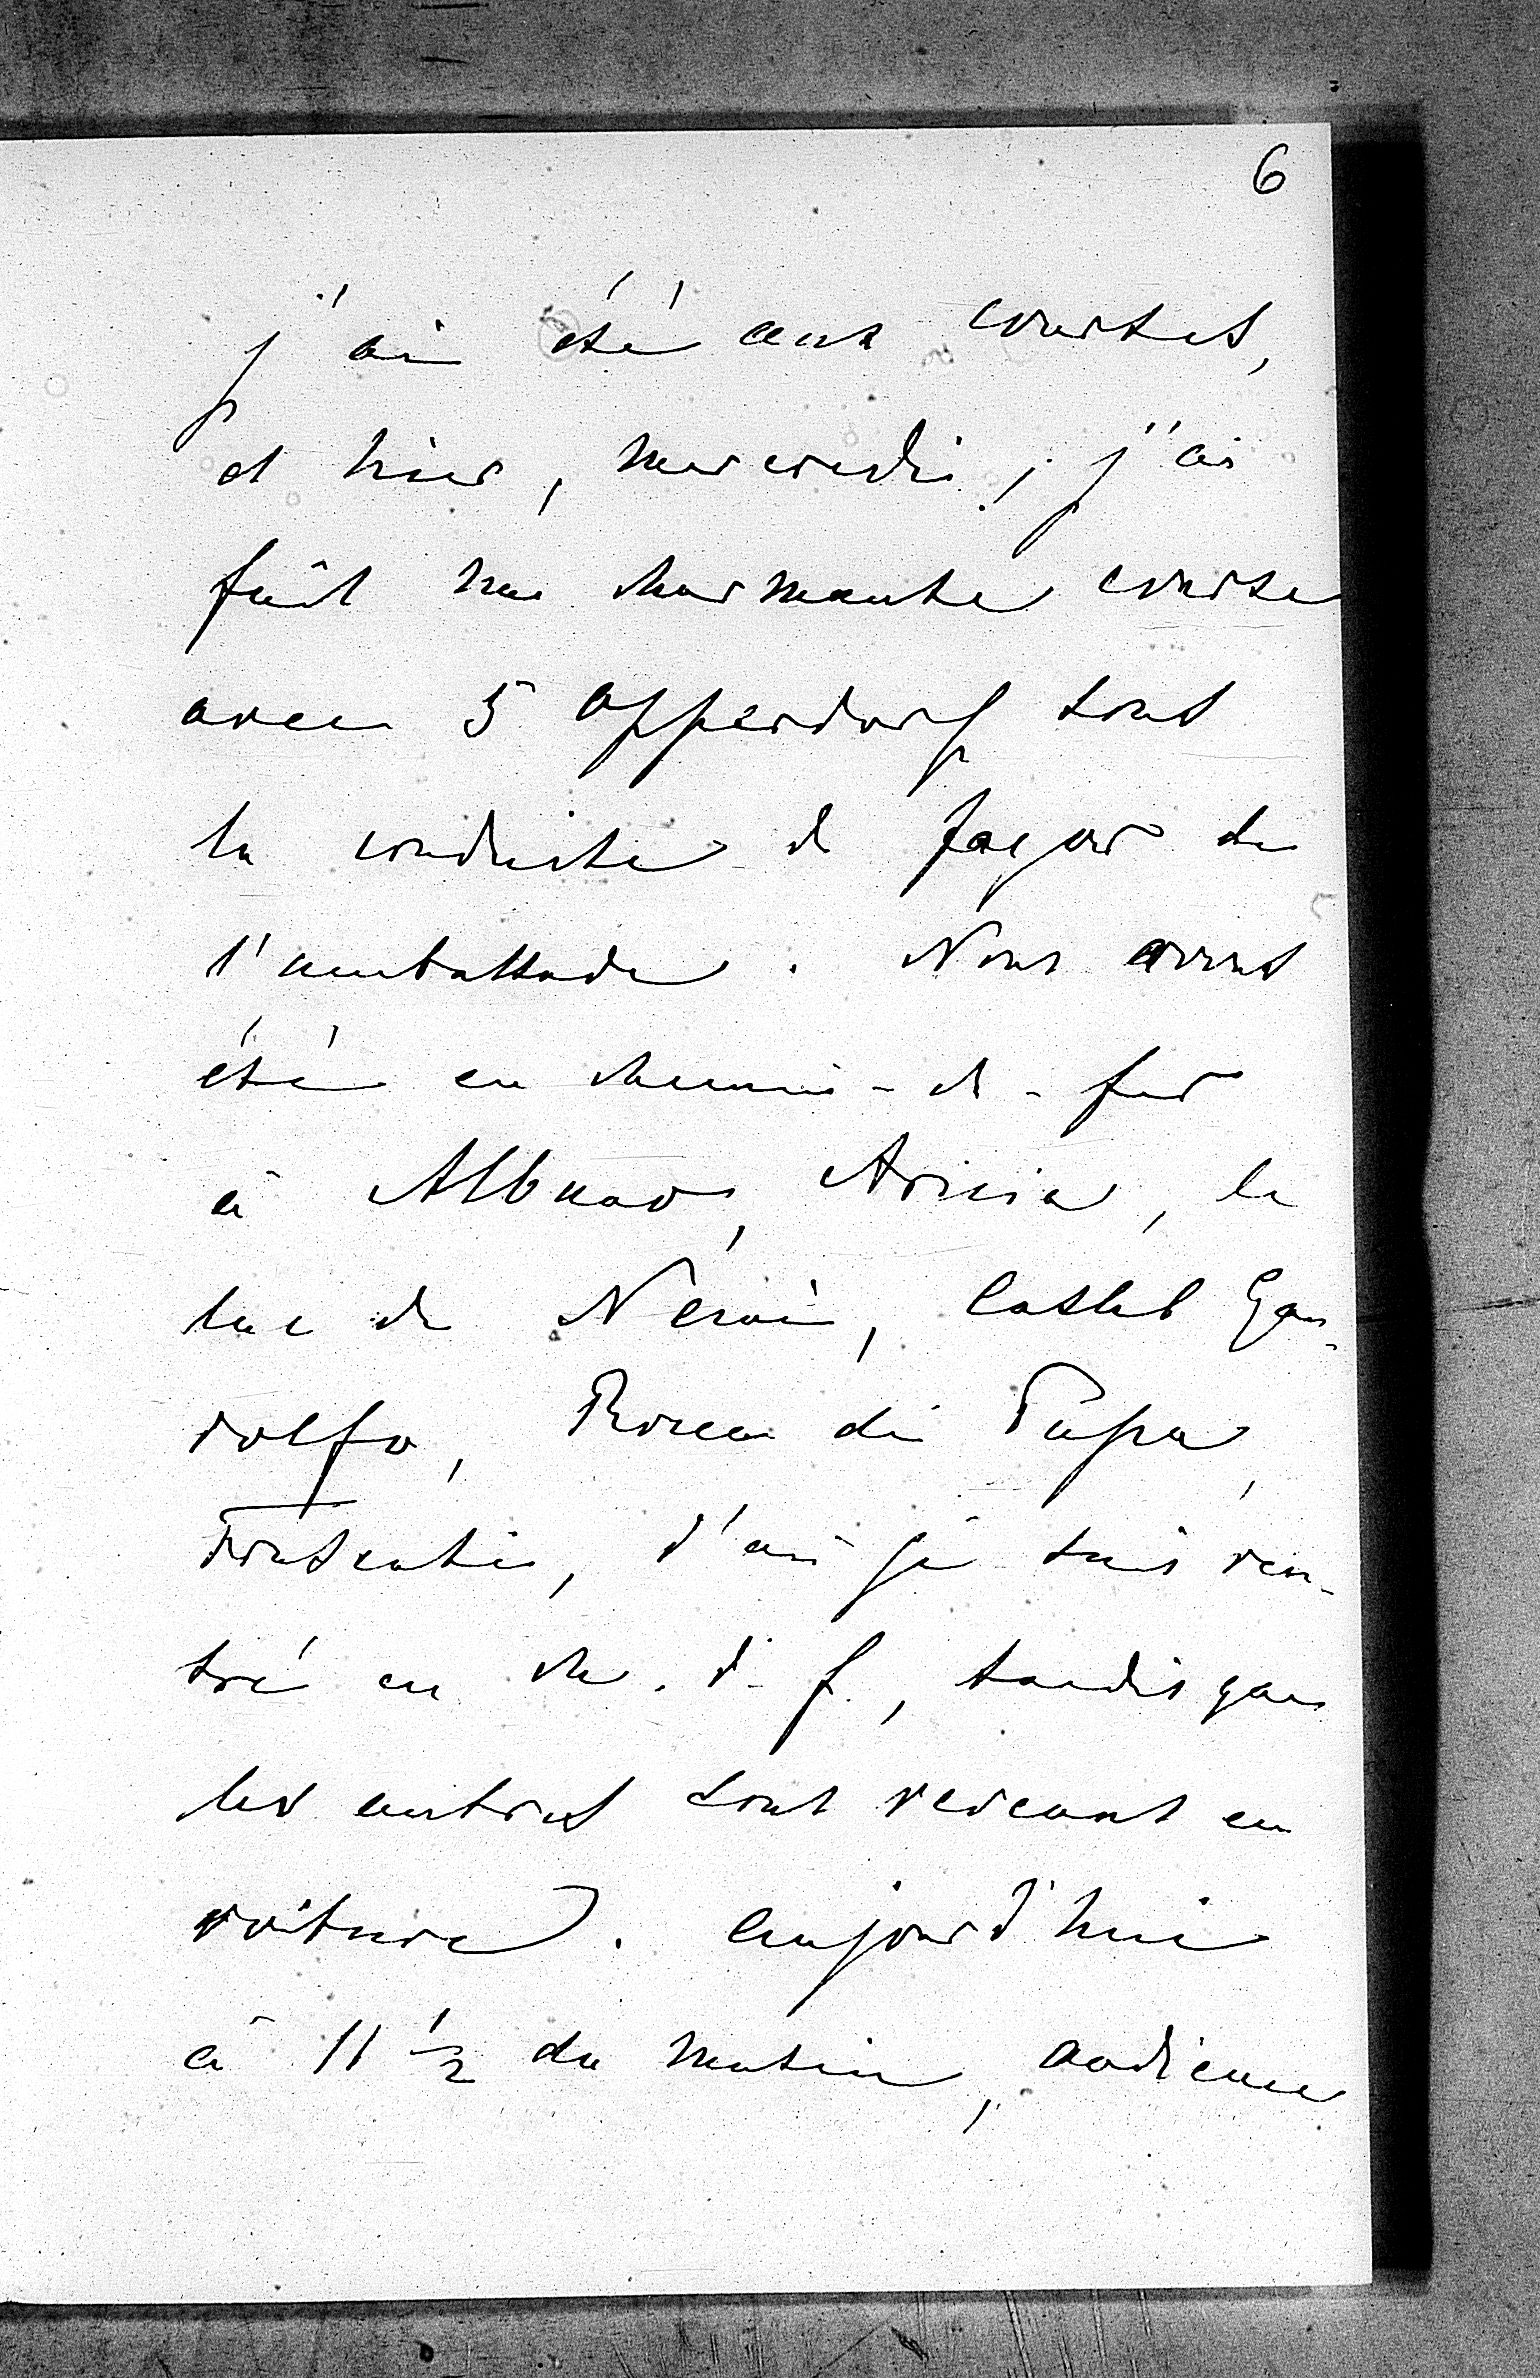 6
j'ai été aux courses,
et hier, mercredi, j'ai
fait une charmante course
avec 5 Opperdorf sous
la conduite de Jagow de
l'ambassade. Nous avons
été en chemin-de-fer
à Albano, Aricia, le
lac de Nemi, Castel Gan-
dolfo, Rocca di Papa,
Frascati, d'où je suis ren-
tré en ch. d. f., tandis que
les autres sont revenus en
voiture. Aujourd'hui
à 11 1/2 du matin, audience